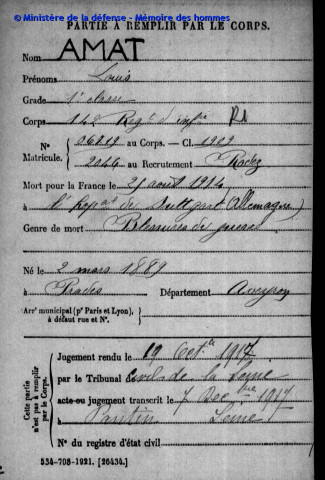 © Ministère de la défense - Mémoire des hommes
PARTIE À REMPLIR PAR LE CORPS.
Nom AMAT
Prénoms Louis
Grade 1e classe
Corps 142 Régt d'infie
N° Matricule. au Corps. — Cl. 1909
2046 au Recrutement Rodez
Mort pour la France le 29 août 1914
à l'hôpital de Stuttgart (Allemagne)
Genre de mort Blessures de guerre
Né le 2 mars 1889
à Prades Département Aveyron
Arrt municipal (pr Paris et Lyon),
à défaut rue et N°.
Cette partie n'est pas à remplir par le Corps.
Jugement rendu le 19 Octobre 1917
par le Tribunal Civil de la Seine
acte ou jugement transcrit le 7 Decbre 1917
à Pantin Seine
N° du registre d'état civil
534-708-1921. [26434.]